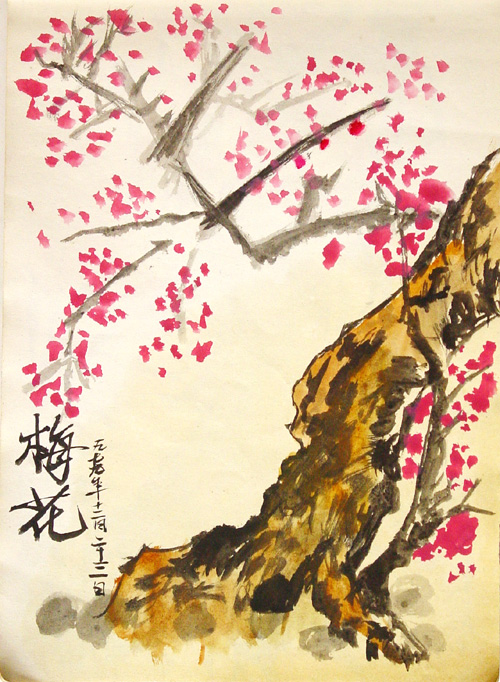 梅花
年十二月二十二日